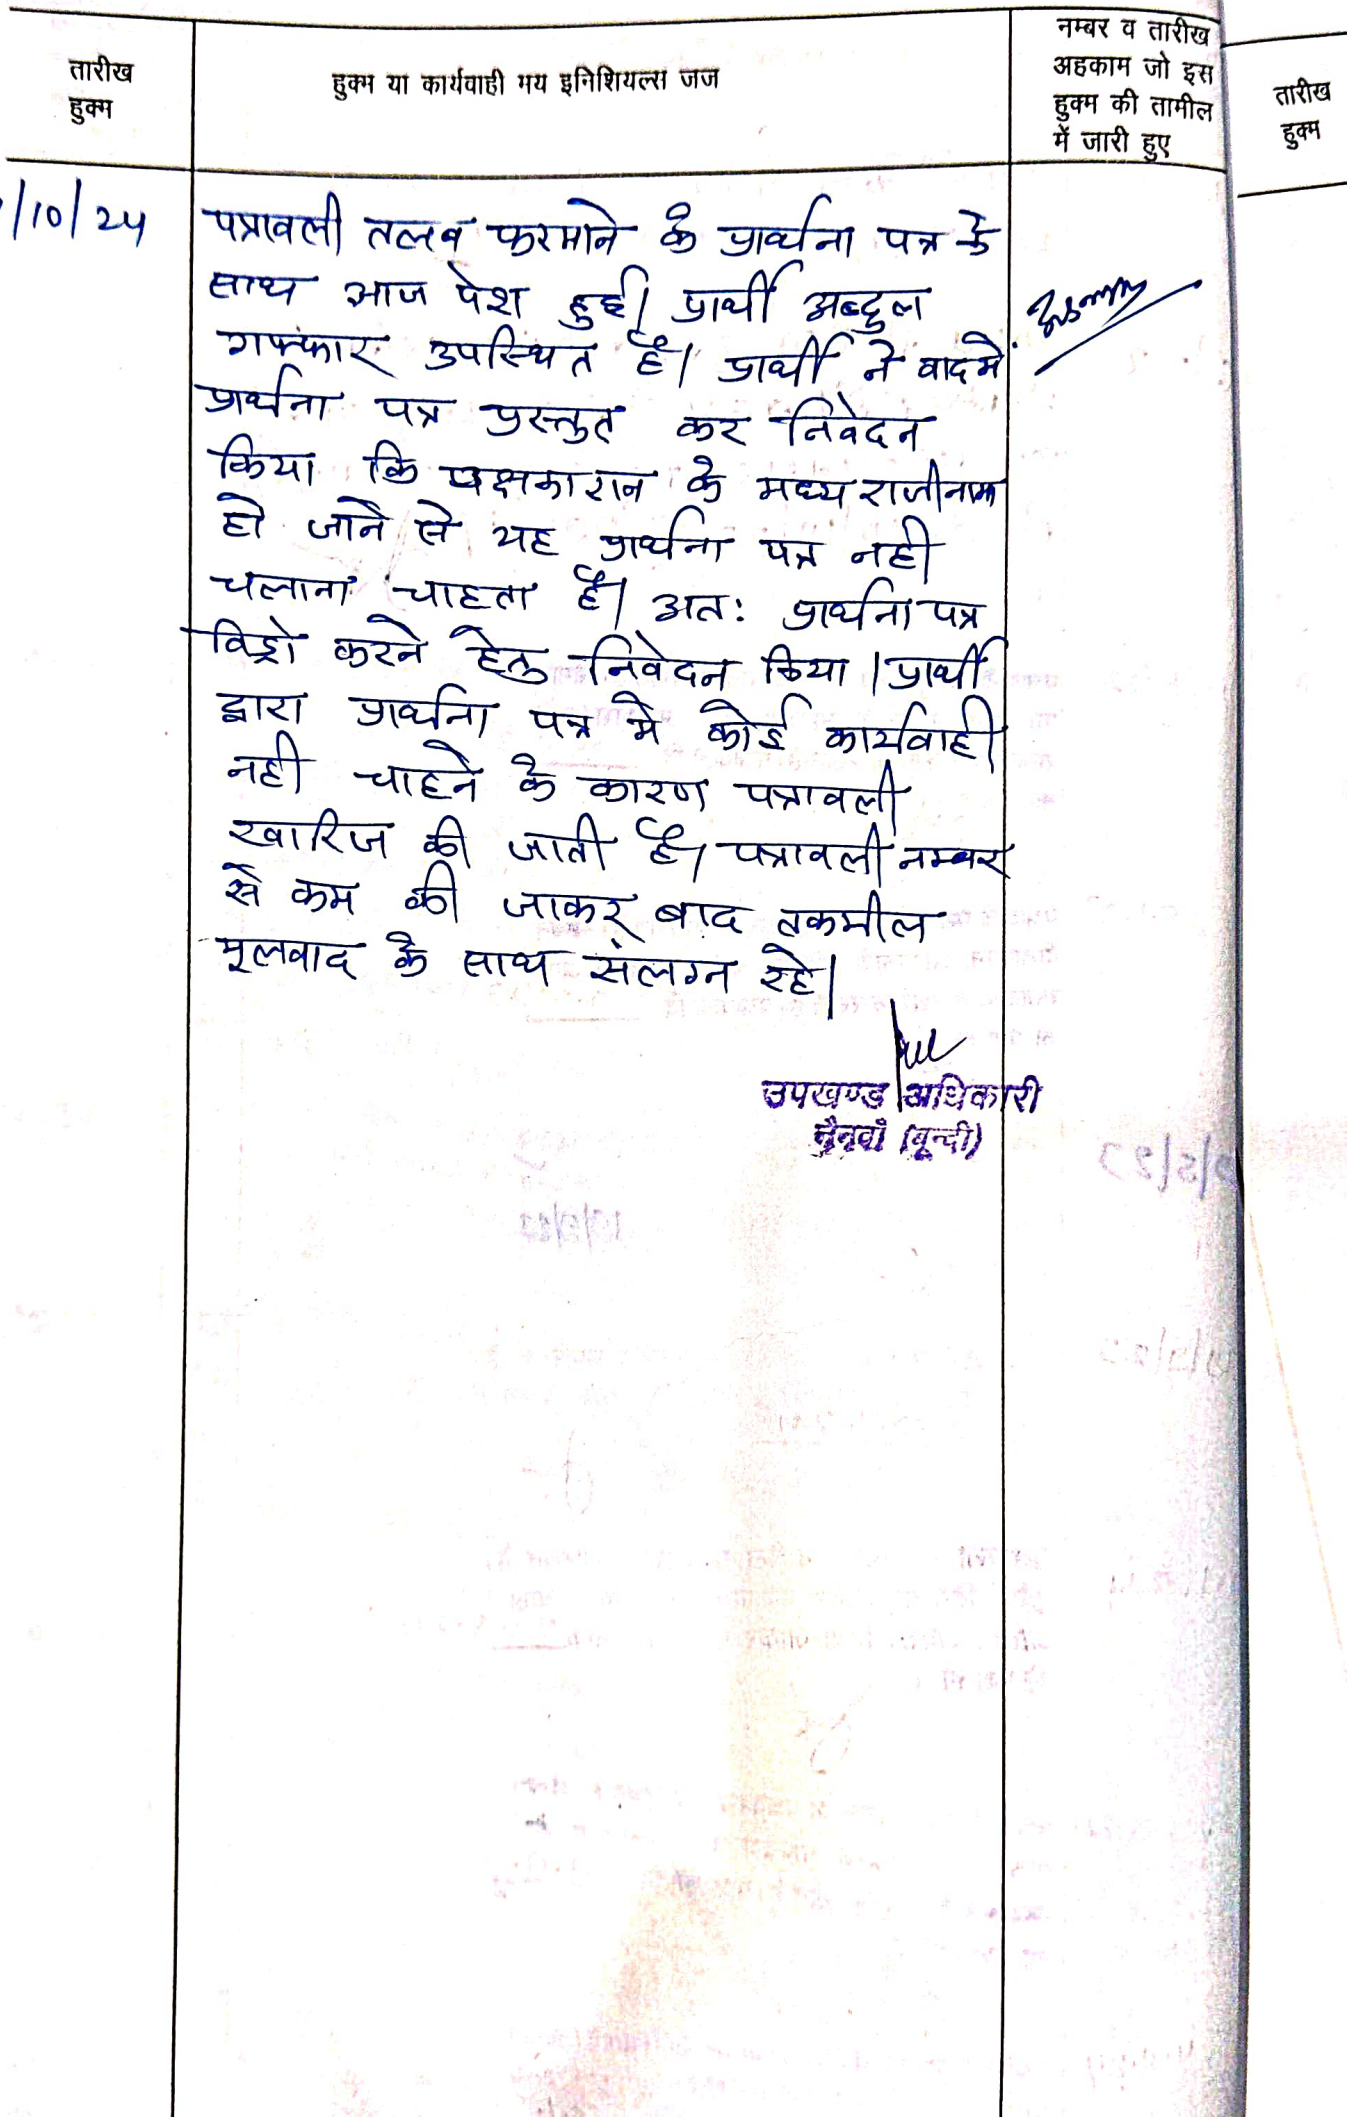 तारीख
हुक्म
हुक्म या कार्यवाही मय इनिशियल्स जज
नम्बर व तारीख
अहकाम जो इस
हुक्म की तामील
में जारी हुए
तारीख
हुक्म
/10/24
पत्रावली तलब फरमाने के प्रार्थना पत्र के
साथ आज पेश हुई। प्रार्थी अब्दुल
गफ्फार उपस्थित है। प्रार्थी ने वाद मे
प्रार्थना पत्र प्रस्तुत कर निवेदन
किया कि पक्षकारान के मध्य राजीनामा
हो जाने से यह प्रार्थना पत्र नही
चलाना चाहता है। अतः प्रार्थना पत्र
विड्रो करने हेतु निवेदन किया। प्रार्थी
द्वारा प्रार्थना पत्र मे कोई कार्यवाही
नही चाहने के कारण पत्रावली
खारिज की जाती है। पत्रावली नम्बर
से कम की जाकर बाद तकमील
मूलवाद के साथ संलग्न रहे।
उपखण्ड अधिकारी
नैनवाँ (बून्दी)